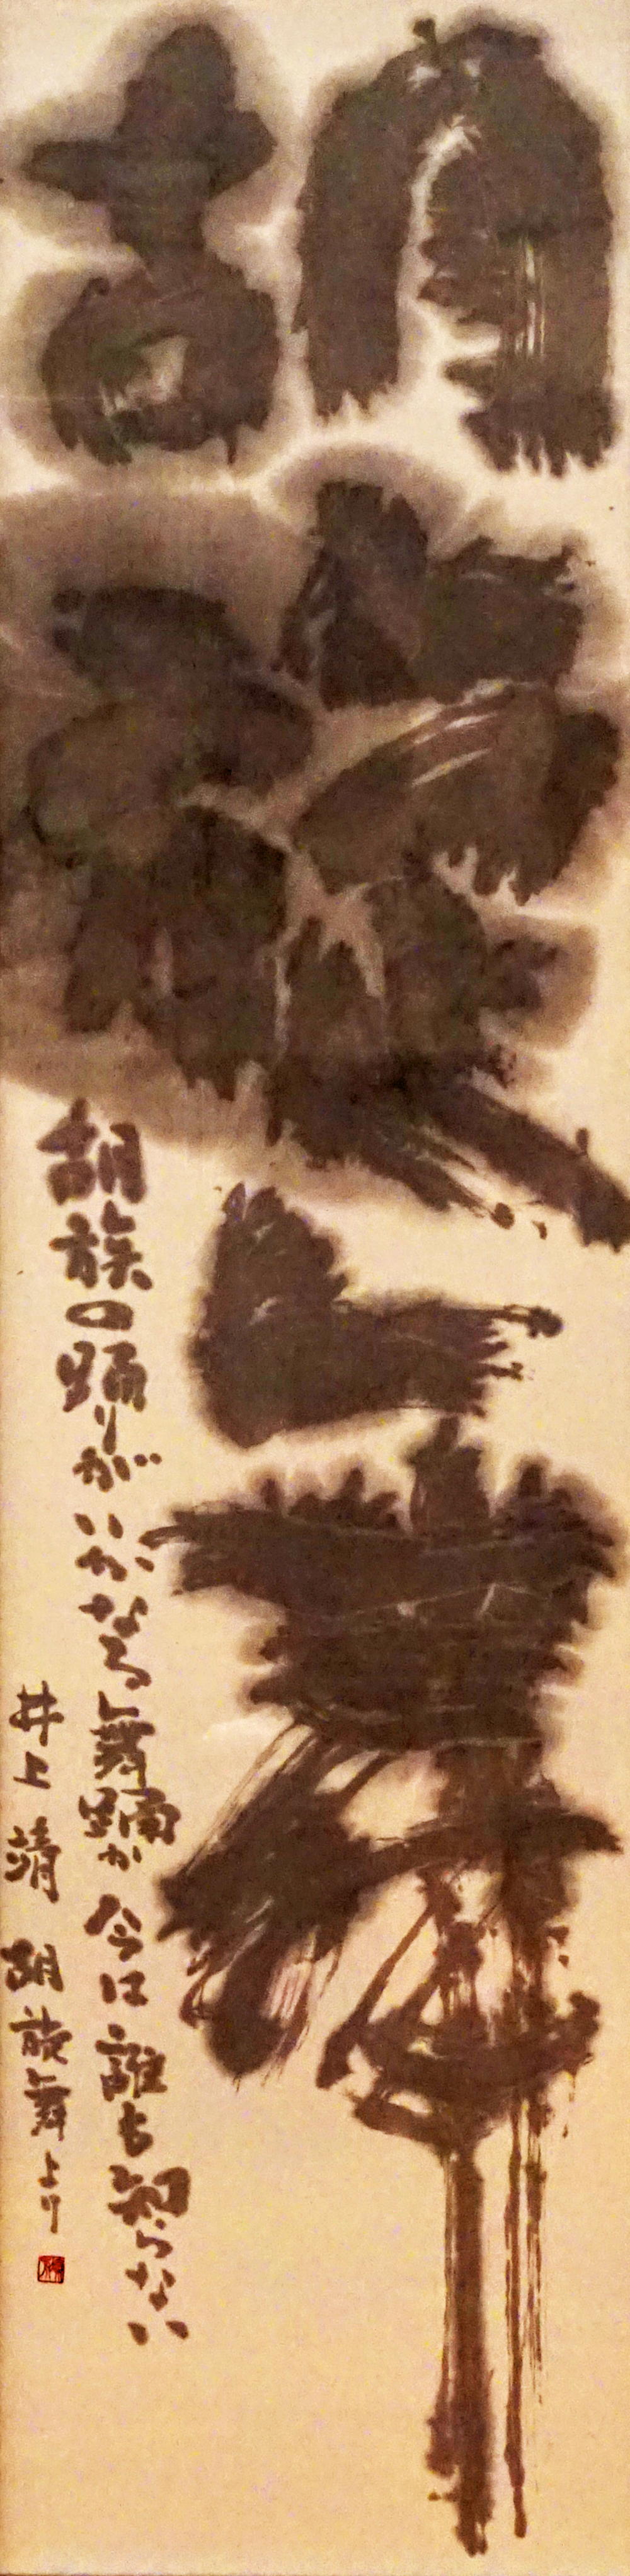 胡旋舞
胡族の踊りがいかなる舞踊か今は誰も知らない
井上靖 胡旋舞より